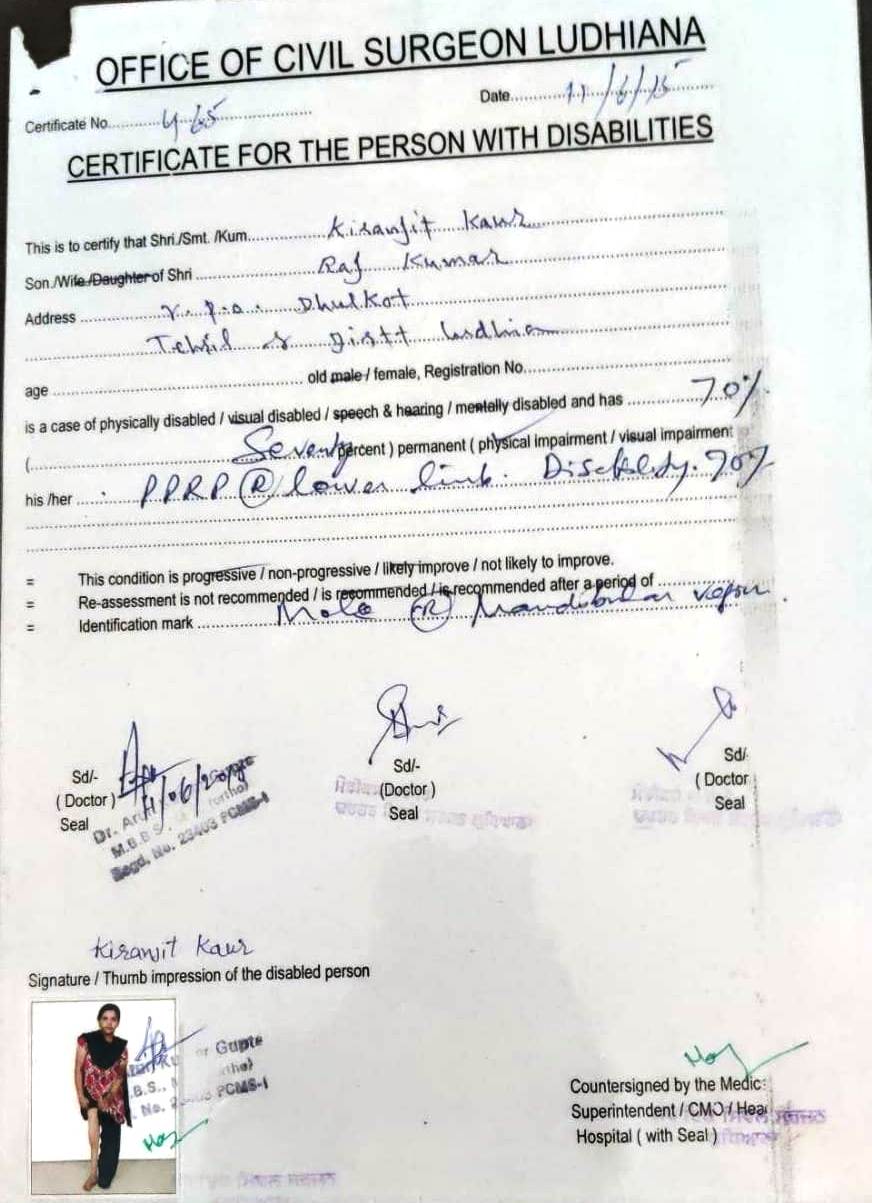 OFFICE OF CIVIL SURGEON LUDHIANA
Certificate No. 465 Date 11/6/15
CERTIFICATE FOR THE PERSON WITH DISABILITIES
This is to certify that Shri./Smt. /Kum. Kiranjit Kaur
Son./Wife./Daughter of Shri Raj Kumar
Address V.p.o. Dhulkot
Tehsil & Distt
age old male / female, Registration No.
is a case of physically disabled / visual disabled / speech & hearing / mentally disabled and has 70%
( Seventy percent ) permanent ( physical impairment / visual impairment
his /her PPRP (R) lower limb. Disability. 70%
= This condition is progressive / non-progressive / likely improve / not likely to improve.
= Re-assessment is not recommended / is recommended / is recommended after a period of
= Identification mark Mole (R) Mandibular region.
Sd/- Sd/- Sd/-
( Doctor ) 11/06/2015 (Doctor ) ( Doctor
Seal Seal Seal
M.B.B.S.
Regd. No. 23403 PCMS-I
Kiranjit Kaur
Signature / Thumb impression of the disabled person
Gupte
PCMS-I
Countersigned by the Medic
Superintendent / CMO / Hea
Hospital ( with Seal )